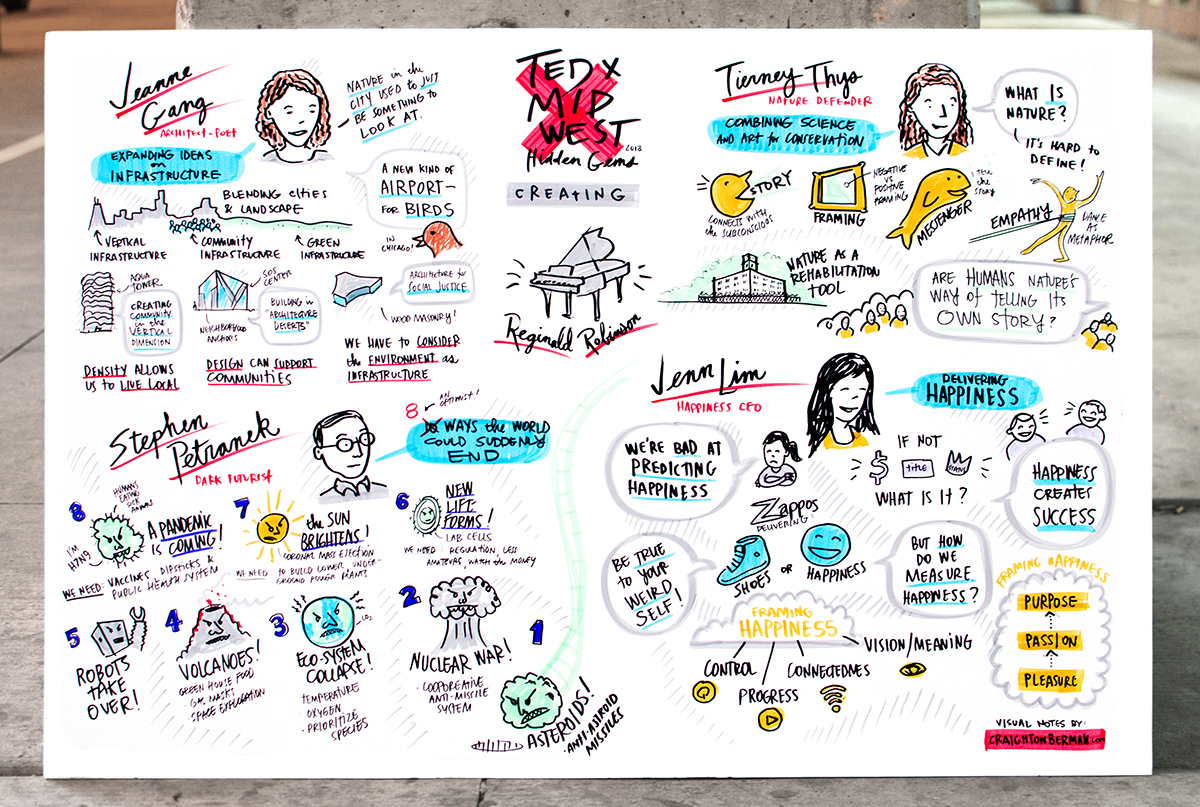 Jeanne
Gang
ARCHITECT-POET
NATURE in the
CITY USED to JUST
BE SOMETHING to
LOOK AT.
EXPANDING IDEAS
on
INFRASTRUCTURE
BLENDING CITIES
& LANDSCAPE
A NEW KIND OF
AIRPORT-
FOR BIRDS
IN
CHICAGO!
VERTICAL
INFRASTRUCTURE
COMMUNITY
INFRASTRUCTURE
GREEN
INFRASTRUCTURE
AQUA
TOWER
CREATING
COMMUNITY
in the
VERTICAL
DIMENSION
SOS
CENTER
NEIGHBORHOOD
ANCHORS
BUILDING in
"ARCHITECTURE
DESERTS"
ARCHITECTURE for
SOCIAL JUSTICE.
WOOD MASONRY!
DENSITY ALLOWS
US to LIVE LOCAL
DESIGN CAN SUPPORT
COMMUNITIES
WE HAVE to CONSIDER
the ENVIRONMENT as
INFRASTRUCTURE
TEDx
MID
WEST
2013
Hidden Gems
CREATING
Reginald Robinson
Tierney Thys
NATURE DEFENDER
COMBINING SCIENCE
AND ART for CONSERVATION
WHAT IS
NATURE?
IT'S HARD to
DEFINE!
STORY
CONNECTS with
the SUBCONSCIOUS
NEGATIVE
VS
POSITIVE
FRAMING
FRAMING
I TELL
the
STORY
MESSENGER
EMPATHY
DANCE
AS
METAPHOR
NATURE AS A
REHABILITATION
TOOL
ARE HUMANS NATURE'S
WAY OF TELLING ITS
OWN STORY?
Stephen
Petranek
DARK FUTURIST
8
AN
OPTIMIST!
10 WAYS the WORLD
COULD SUDDENLY
END
8
HUMANS
EATING
SICK
ANIMALS
I'M
H7N9
A PANDEMIC
IS COMING!
WE NEED: VACCINES, DIPSTICKS &
PUBLIC HEALTH SYSTEM
7
the SUN
BRIGHTENS!
CORONAL MASS EJECTION
WE NEED to BUILD LOWER, UNDER-
GROUND POWER PLANTS
6
NEW
LIFE-
FORMS!
LAB CELLS
WE NEED: REGULATION, LESS
AMATEURS, WATCH the MONEY
5
ROBOTS
TAKE
OVER!
4
VOLCANOES!
GREEN HOUSE FOOD
GAS MASKS
SPACE EXPLORATION
3
CO2
ECO-SYSTEM
COLLAPSE!
TEMPERATURE
OXYGEN
• PRIORITIZE
SPECIES
2
NUCLEAR WAR!
• COOPORATIVE
ANTI-MISSILE
SYSTEM
1
ASTEROIDS!
• ANTI-ASTROID
MISSILES
Jenn Lim
HAPPINESS CEO
DELIVERING
HAPPINESS
WE'RE BAD AT
PREDICTING
HAPPINESS
IF NOT
$ TITLE STATUS
WHAT IS IT?
HAPPINESS
CREATES
SUCCESS
Zappos
DELIVERING:
SHOES OR HAPPINESS
BE TRUE
to YOUR
WEIRD
SELF!
BUT HOW
DO WE
MEASURE
HAPPINESS?
FRAMING
HAPPINESS
CONTROL
PROGRESS
CONNECTEDNES
VISION/MEANING
FRAMING HAPPINESS
PURPOSE
PASSION
PLEASURE
VISUAL NOTES BY:
CRAIGHTONBERMAN.com